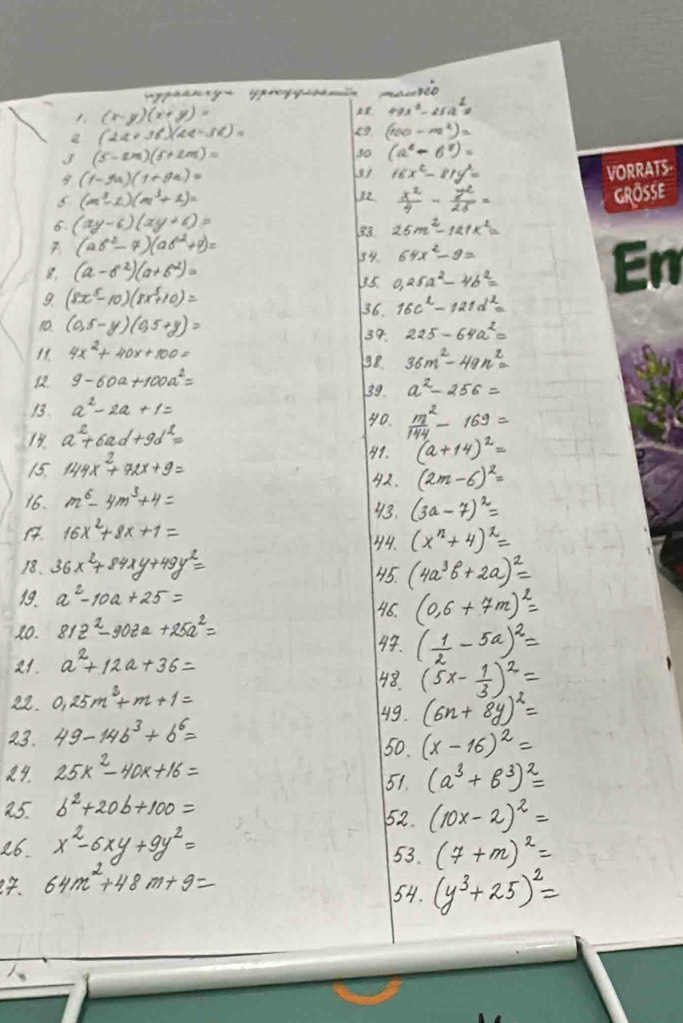 1. (x-y)(x+y)=
2. (2a+3b)(2a-3b)=
3 (5-2m)(5+2m)=
4 (1-9a)(1+9a)=
5. (m³-2)(m³+2)=
6. (xy-6)(xy+6)=
7. (aв²-7)(aв²+7)=
8. (a-в²)(a+в²)=
9. (8x⁵-10)(8x⁵+10)=
10. (0,5-y)(0,5+y)=
11. 4x²+40x+100=
12. 9-60a+100a²=
13. a²-2a+1=
14. a²+6ad+9d²=
15. 144x²+72x+9=
16. m⁶-4m³+4=
17. 16x²+8x+1=
18. 36x²+84xy+49y²=
19. a²-10a+25=
20. 81z²-90za+25a²=
21. a²+12a+36=
22. 0,25m²+m+1=
23. 49-14b³+b⁶=
24. 25x²-40x+16=
25. b²+20b+100=
26. x²-6xy+9y²=
27. 64m²+48m+9=
28. 49x²-25a²=
29. (100-m²)=
30 (a²-в²)=
31 16x²-81y²=
32 x²/4 - y²/25 =
33. 25m²-121x²=
34. 64x²-9=
35. 0,25a²-4b²=
36. 16c²-121d²=
37. 225-64a²=
38. 36m²-49n²=
39. a²-256=
40. m²/144 - 169=
41. (a+14)²=
42. (2m-6)²=
43. (3a-7)²=
44. (xⁿ+4)²=
45. (4a³в+2a)²=
46. (0,6+7m)²=
47. (1/2-5a)²=
48. (5x-1/3)²=
49. (6n+8y)²=
50. (x-16)²=
51. (a³+в³)²=
52. (10x-2)²=
53. (7+m)²=
54. (y³+25)²=
VORRATS-
GRÖSSE
Em